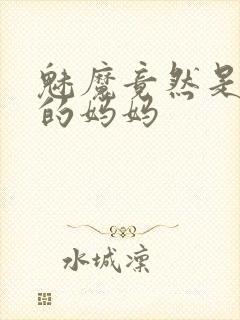 魅魔竟然是
的妈妈
水城凛